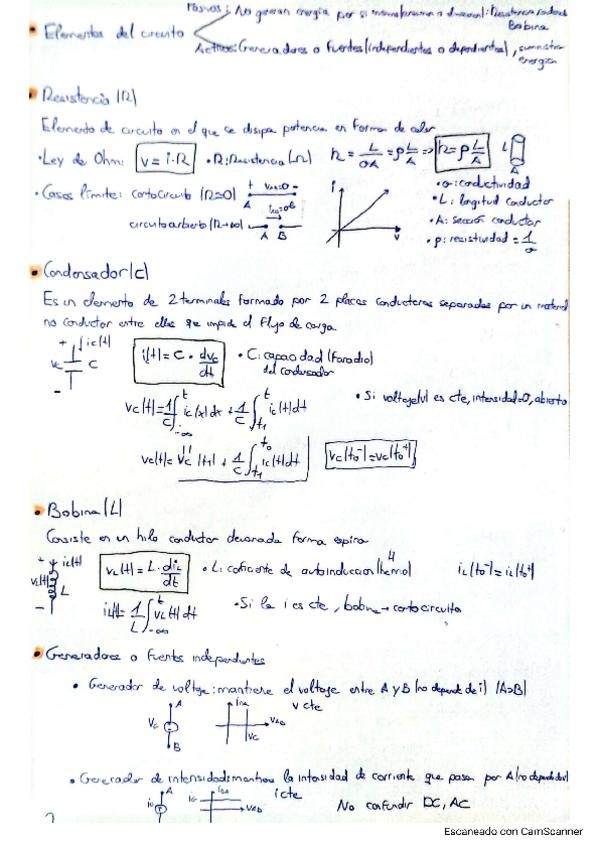 Pasivos: No generan energía por si
• Elementos del circuito
Activos: Generadores o Fuentes (independientes o dependientes), suministran energía
Bobina
• Resistencia (R)
Elemento de circuito en el que se disipa potencia en forma de calor
• Ley de Ohm: v = i·R • R: Resistencia (Ω) R = L/σA = ρ L/A => R = ρ L/A
• σ: conductividad
• Casos límite: cortocircuito (R=0)
• L: longitud conductor
circuito abierto (R→∞)
• A: sección conductor
• ρ: resistividad = 1/σ
A B
• Condensador (C)
Es un elemento de 2 terminales formado por 2 placas conductoras separadas por un material
no conductor entre ellas que impide el flujo de carga.
i(t) = C · dvc/dt • C: capacidad (Faradio) del condensador
vc(t) = 1/C ∫ ic(x)dx + 1/C ∫ ic(t)dt • Si voltaje(v) es cte, intensidad=0, abierto
vc(t) = vc(t1) + 1/C ∫ ic(t)dt vc(to⁻) = vc(to⁺)
• Bobina (L)
Consiste en un hilo conductor devanada forma espira
vL(t) = L · diL/dt • L: coficiente de autoinduccion (henrio) H iL(to⁻) = iL(to⁺)
iL(t) = 1/L ∫ vL(t)dt • Si la i es cte, bobina → cortocircuito
• Generadores o Fuentes independientes
• Generador de voltaje: mantiene el voltaje entre A y B (no depende de i) (A>B)
v cte
• Generador de intensidad: mantiene la intensidad de corriente que pasa por A (no depende de v)
i cte
No confundir DC, AC
2
Escaneado con CamScanner